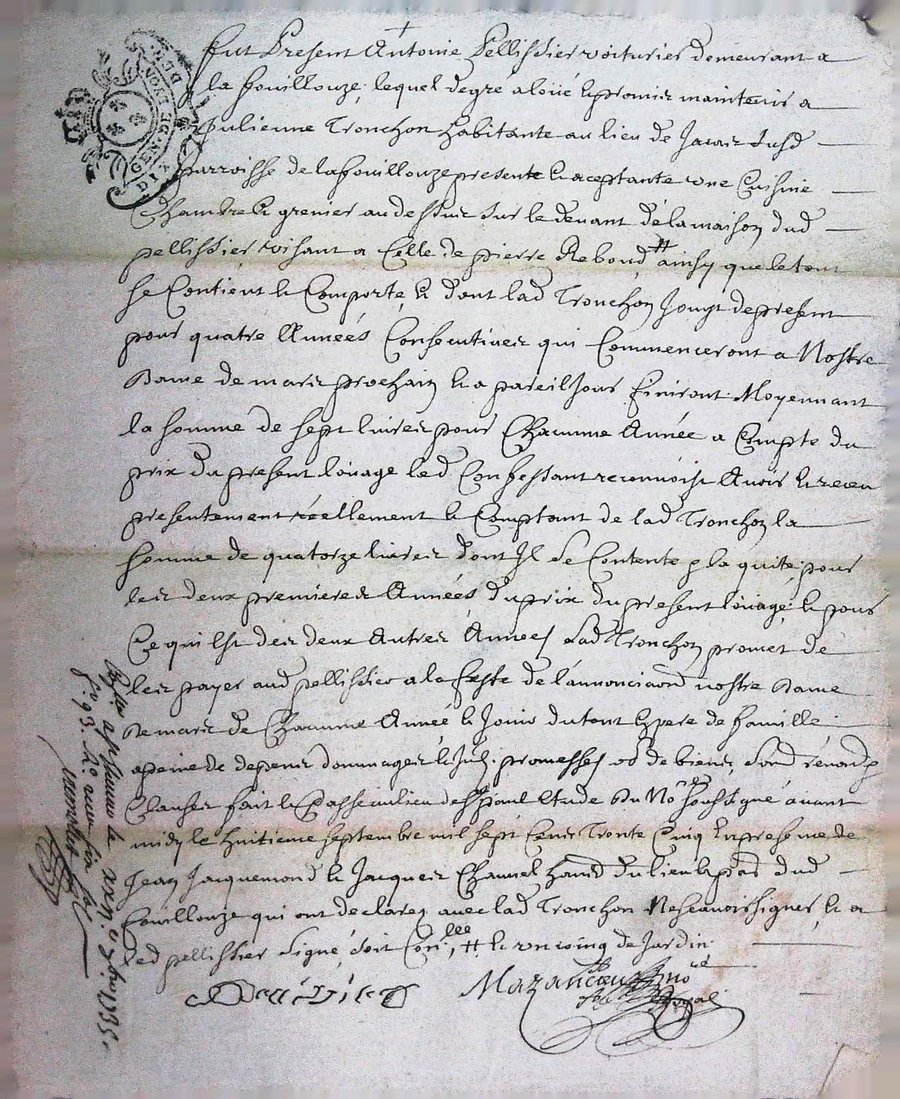 GEN. DE LYON
DIX
Fut Present Antoine Pellissier voiturier demeurant a
la fouillouze, lequel de gre a loüé et promis maintenir a
Julienne Tronchon habitante au lieu de Jacois susd
parroisse de la fouillouze presente et aceptante une Cuisine
Chambre et grenier au dessus sur le devant de la maison dud
pellissier visant a Celle de pierre Reboud # ainsy que le tout
se Contient et Comporte, et dont lad Tronchon Jouyt de present
pour quatre Années Consecutives qui Commenceront a Nostre
Dame de mars prochain et a pareil Jour finiront Moyennant
la somme de sept livres pour Chacune Année a Compte du
prix du present loüage led Confessant reconnoist Avoir et receu
presentement réellement et Comptant de lad Tronchon la
somme de quatorze livres dont Il se Contente et la quite pour
les deux premieres Années du prix du present loüage, et pour
Ce qui Est des deux Autres Années lad Tronchon promet de
les payer aud pellissier a la feste de l'annonciaõn nostre Dame
de mars de Chacune Année et Jouir du tout En pere de famille
a peine de depens dommages et Juss. promesses ob de biens, soub renond
Clauses fait et Passé au lieu de St paul Etude du No.re soussigné avant
midy le huitieme septembre mil sept Cens Trente Cinq En presence de
Jean Jacquemond et Jacques Chanel du lieu et par dud
fouillouze qui ont declarez avec lad Tronchon Ne scavoir signer, et a
led pellissier signé, soit Con.lle, # et un coing de Jardin
Mazancieux no Royal
Con.lle a st. le xxi 7bre 1735.
f.o 93. R.